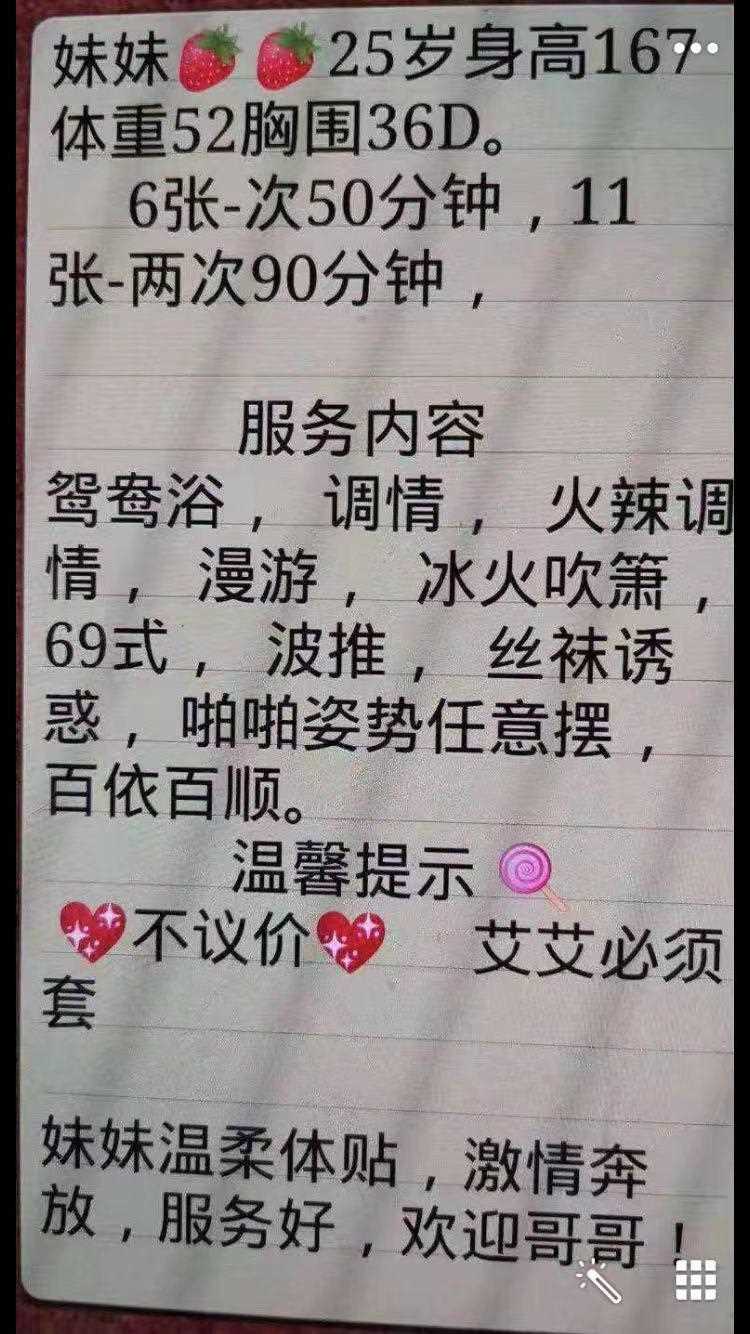 妹妹🍓🍓25岁身高167
体重52胸围36D。
6张-次50分钟，11
张-两次90分钟，
服务内容
鸳鸯浴， 调情， 火辣调
情， 漫游， 冰火吹箫，
69式， 波推， 丝袜诱
惑， 啪啪姿势任意摆，
百依百顺。
温馨提示🍭
💖不议价💖 艾艾必须
套
妹妹温柔体贴，激情奔
放，服务好，欢迎哥哥！